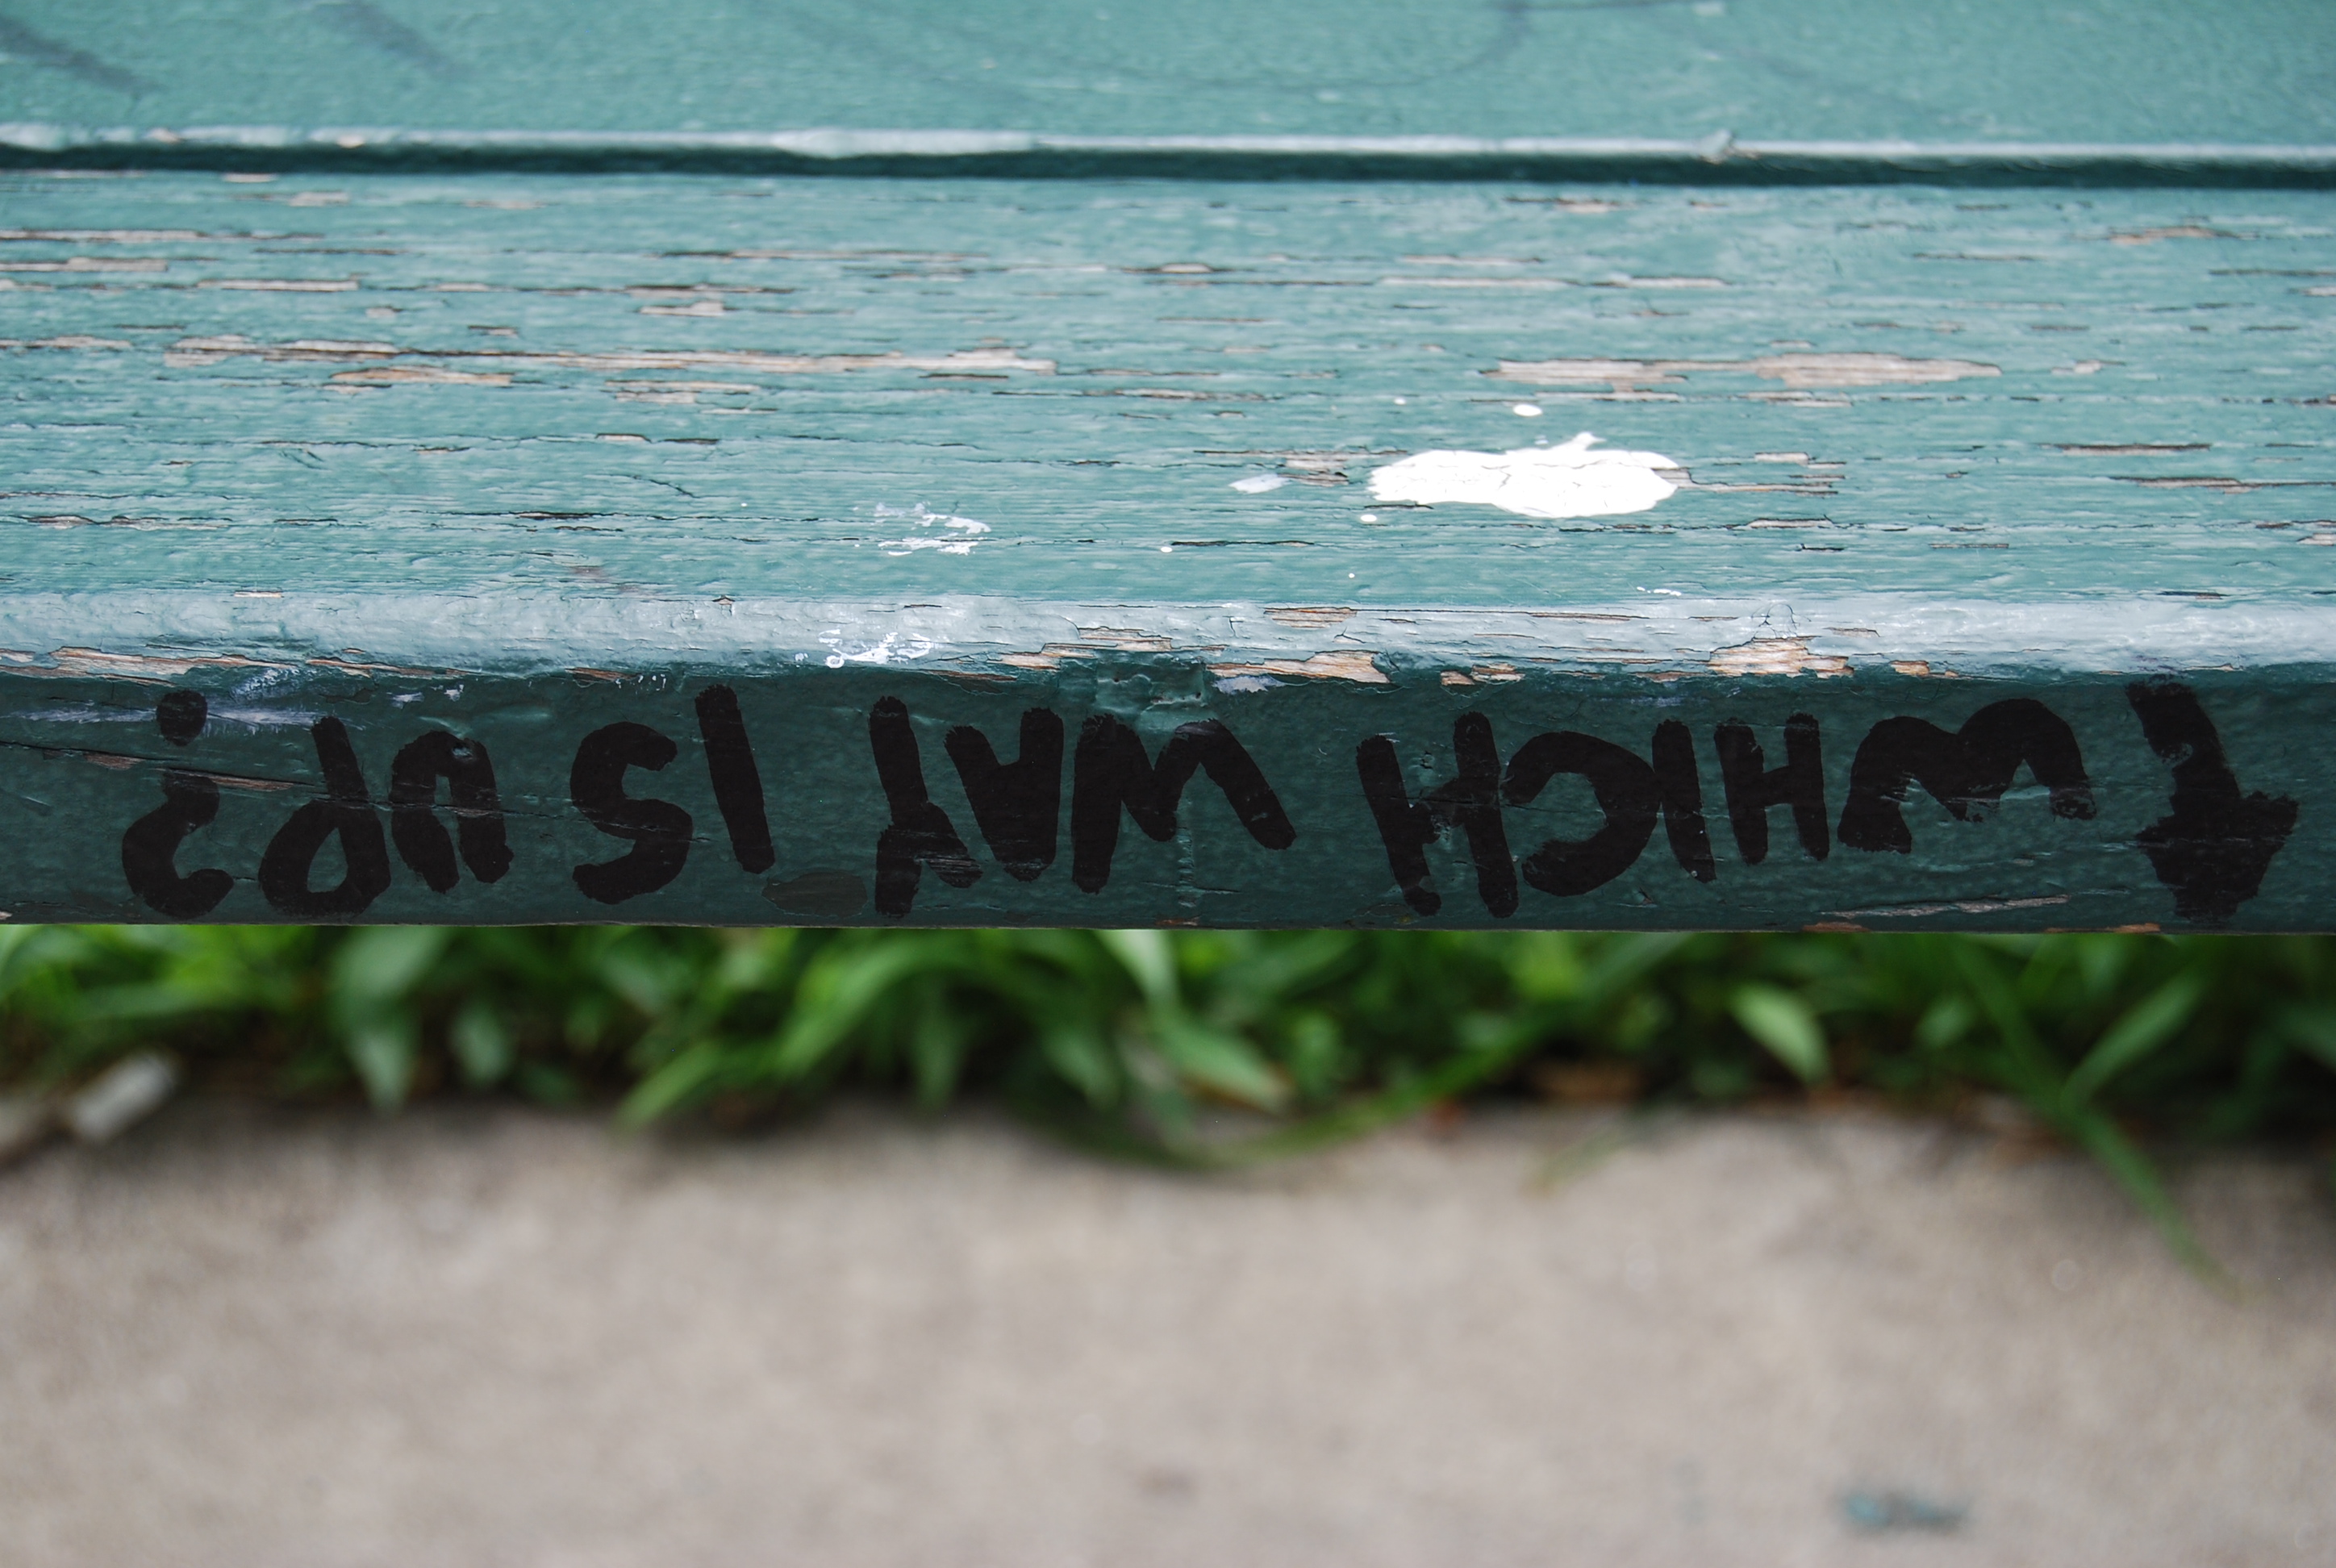 ↑ WHICH WAY IS UP?